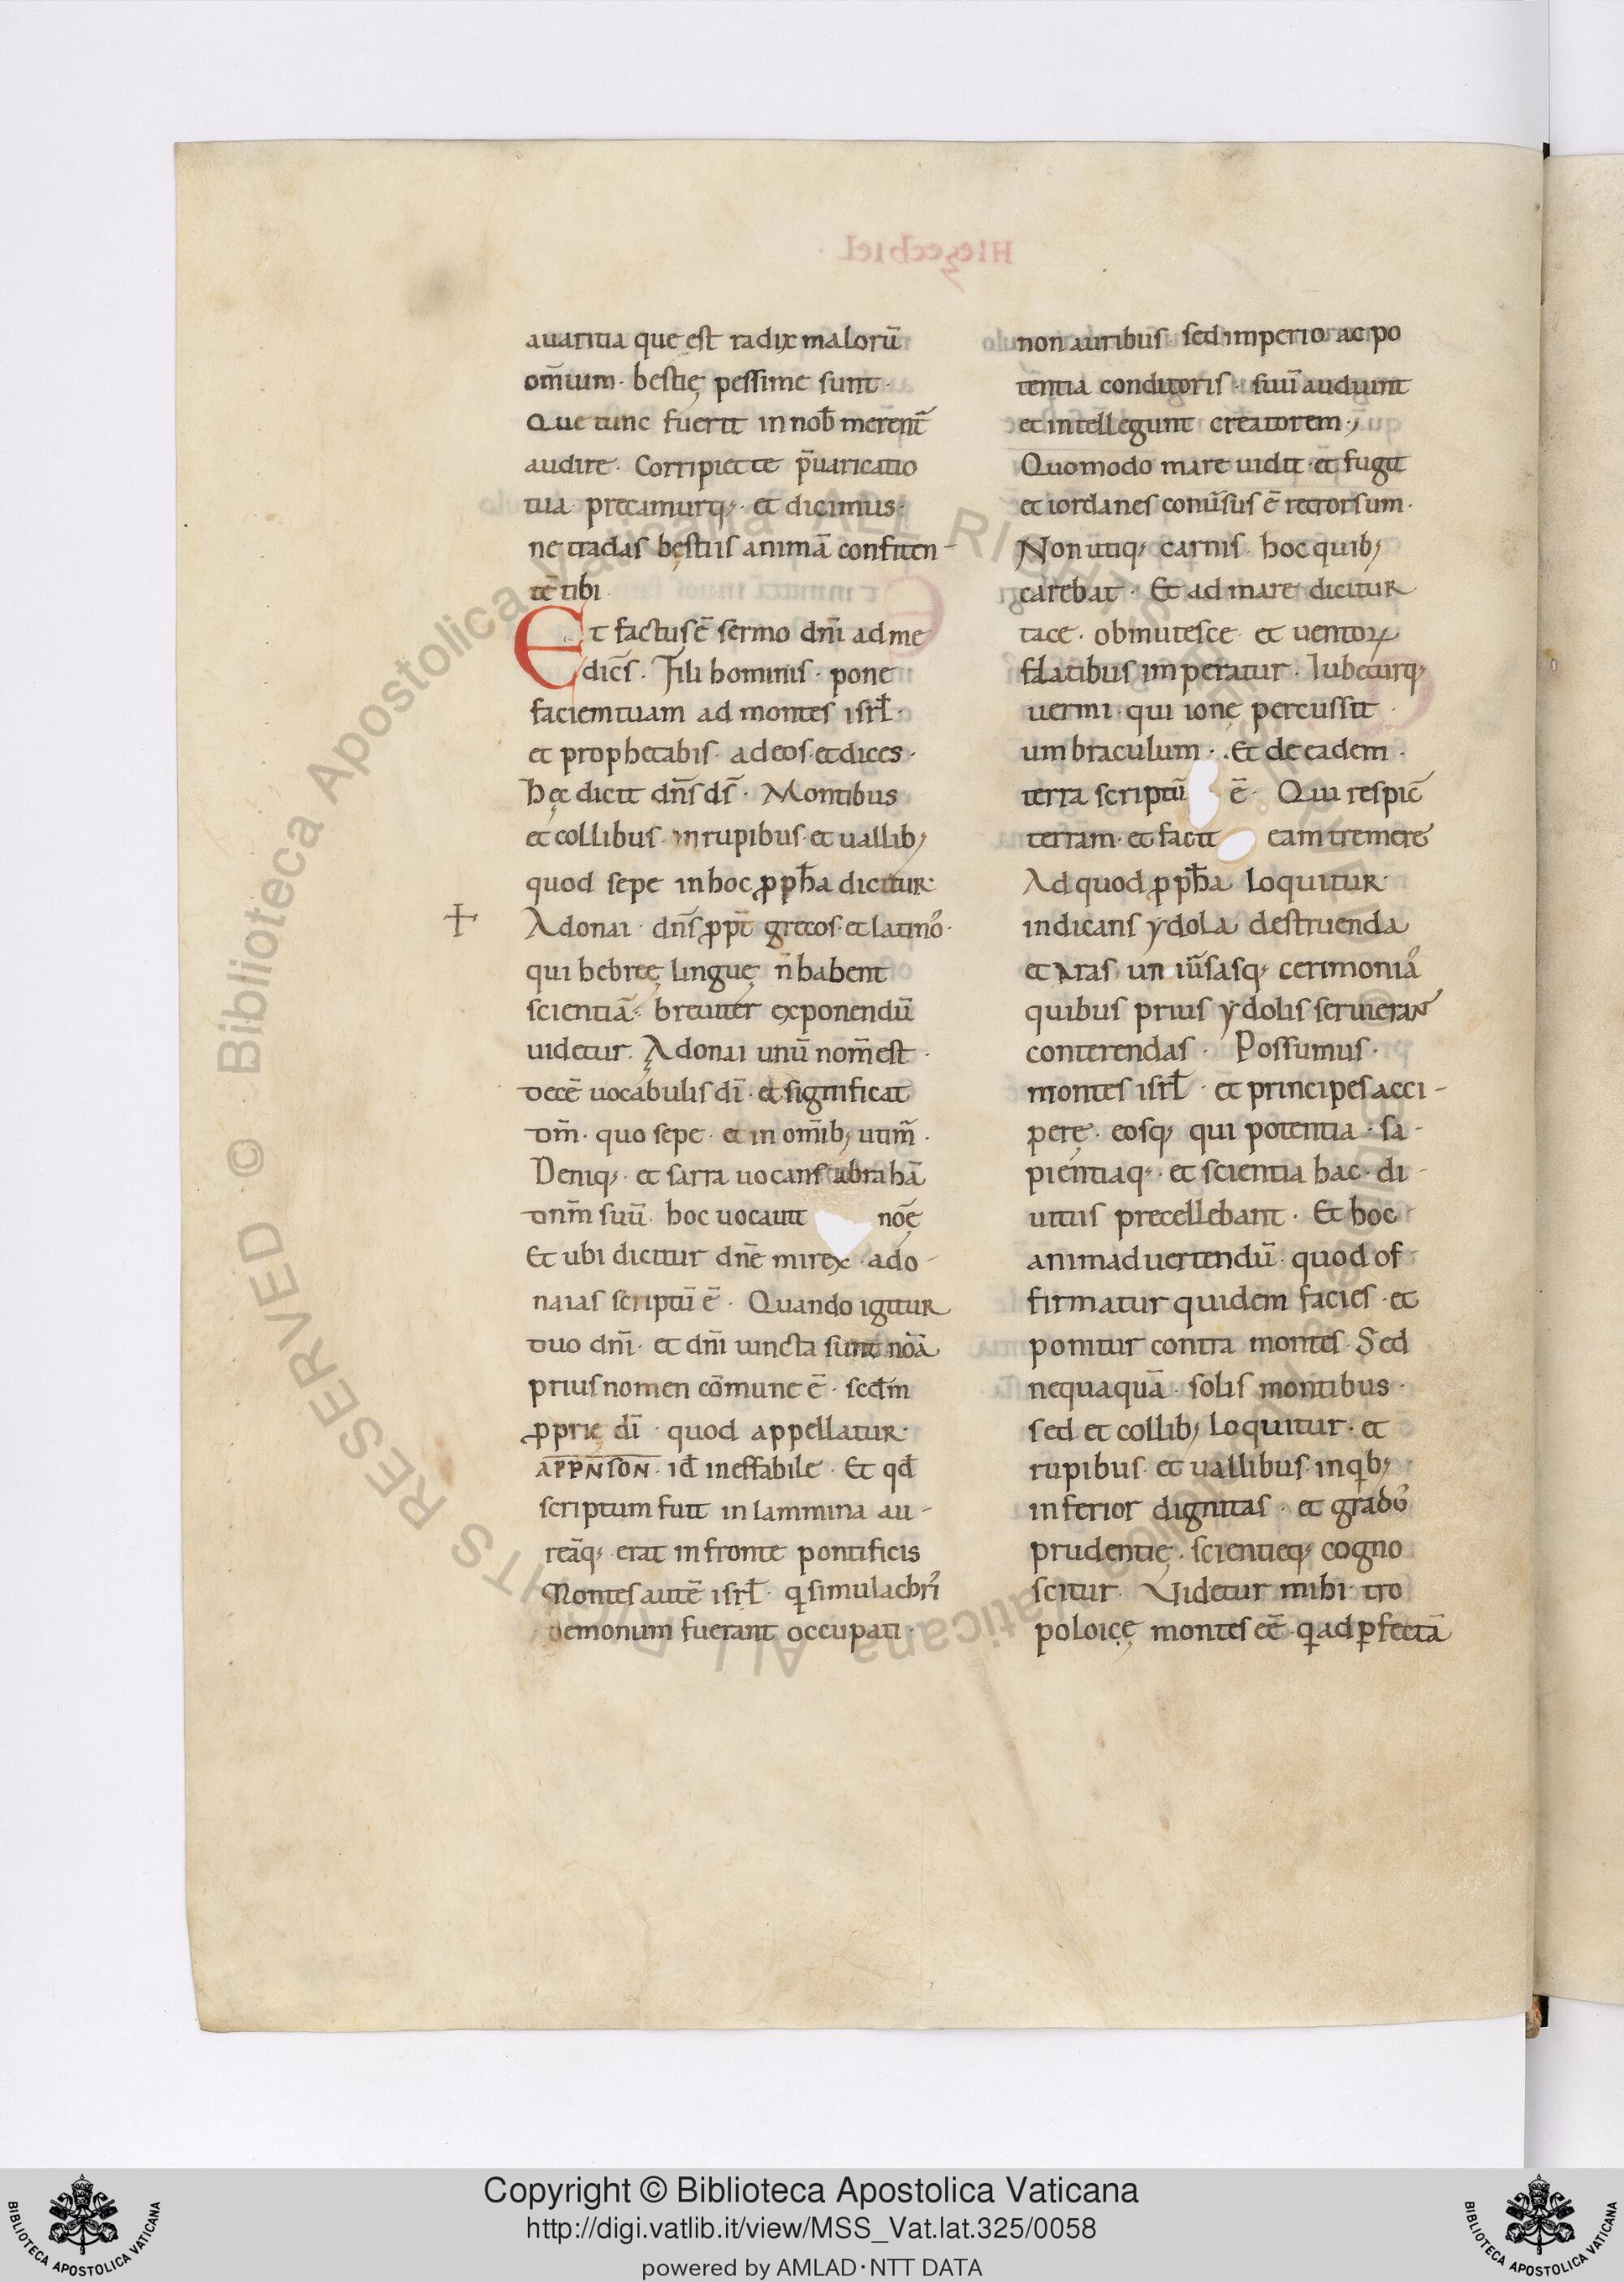 avaritia que est radix malorū
om̄ium · bestię pessime sunt ·
Que tunc fuerit in nob̄ merent̄
audire · Corripiet te p̄uaricatio
tua precamurq; · et dicimus ·
ne tradas bęstiis animā confiten-
tē tibi ·
Et factus ē sermo dn̄i ad me
dicēs . Fili hominis · pone
faciem tuam ad montes isrł ·
et prophetabis · ad eos · et dices ·
hęc dicit dn̄s ds̄ · Montibus
et collibus · in rupibus · et uallib;
quod sepe in hoc ꝓph̄a dicitur ·
+
Adonai · dn̄s ꝓpt̄ grecos · et latinoˀ ·
qui hebreę linguę n̄ habent
scientiā · breuiter exponendū
uidetur . Adonai unū nom̄ est ·
decē uocabulis dī · et significat
dom̄ · quo sepe · et in om̄ib; utim̄ ·
Deniq; · et sarra uocans abrahā
dnm̄ suū · hoc uocauit noē
Et ubi dicitur dnē mi rex · ado-
naias scriptū ē · Quando igitur
duo dn̄i · et dn̄i iuncta sunt nōā
prius nomen cōmune ē · secdm̄
ꝓprię dī · quod appellatur ·
id̄ ineffabile · Et qd̄
scriptum fuit in lammina au-
reāq; · erat in fronte pontificis
Montes autē isrł · q simulachrˀi
demonum fuerant occupati ·
non auribus · sed imperio ac po
tentia conditoris · suū audiunt
et intellegunt creatorem ·,
Quomodo mare uidit · et fugit
et iordanes conūsus ē retrorsum ·
Non utiq; carnis · hoc quib;
carebat · Et ad mare dicitur
tace · obmutesce · et uentoꝝ
flatibus imperatur · Iubeturq;
uermi · qui ionę percussit ·
umbraculum · . Et de eadem ·
terra scriptū ē · Qui respic̄
terram · et facit eam tremere
Ad quod ꝓph̄a loquitur ·
indicans ydola destruenda
et aras · un iūsasq; cerimoniaˀ
quibus prius ydolis seruieran̄
conterendas · Possumus ·
montes isrł · et principes acci-
pere · eosq; qui potentia · sa-
pientiaq; · et scientia hac · di-
uitus precellebant · Et hoc ·
animaduertendū · quod of
firmatur quidem facies · et
ponitur contra montes · Sed
nequaquā · solis montibus ·
sed et collib; loquitur · et
rupibus · et uallibus · in qb;
inferior dignitas · et graduˀ
prudentię · scientieq; cogno
scitur · Videtur mihi · tro
poloicę montes eē · q ad ꝑfectā
Copyright © Biblioteca Apostolica Vaticana
http://digi.vatlib.it/view/MSS_Vat.lat.325/0058
powered by AMLAD·NTT DATA
BIBLIOTECA APOSTOLICA VATICANA
BIBLIOTECA APOSTOLICA VATICANA
© Biblioteca Apostolica Vaticana ALL RIGHTS RESERVED